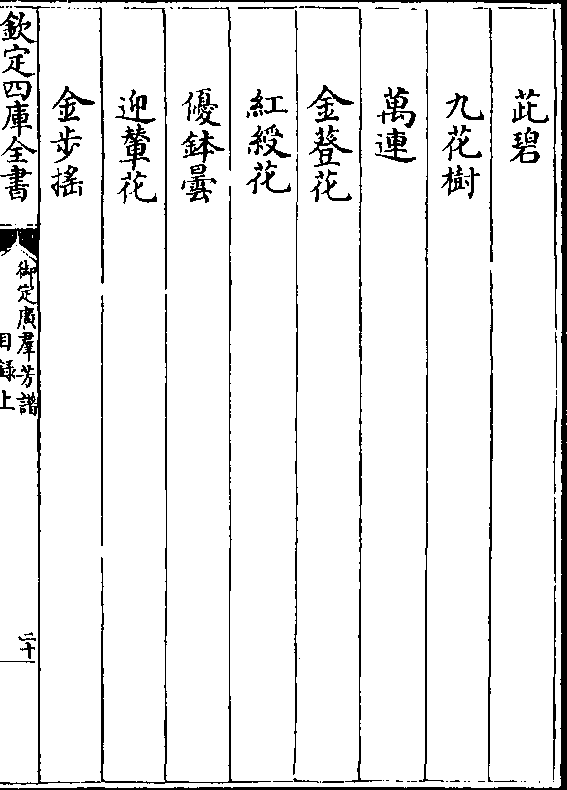 茈碧
九花樹
萬連
金䔲花
紅綬花
優鉢曇
迎輦花
金步摇
欽定四庫全書
御定廣羣芳譜
目録上
二十